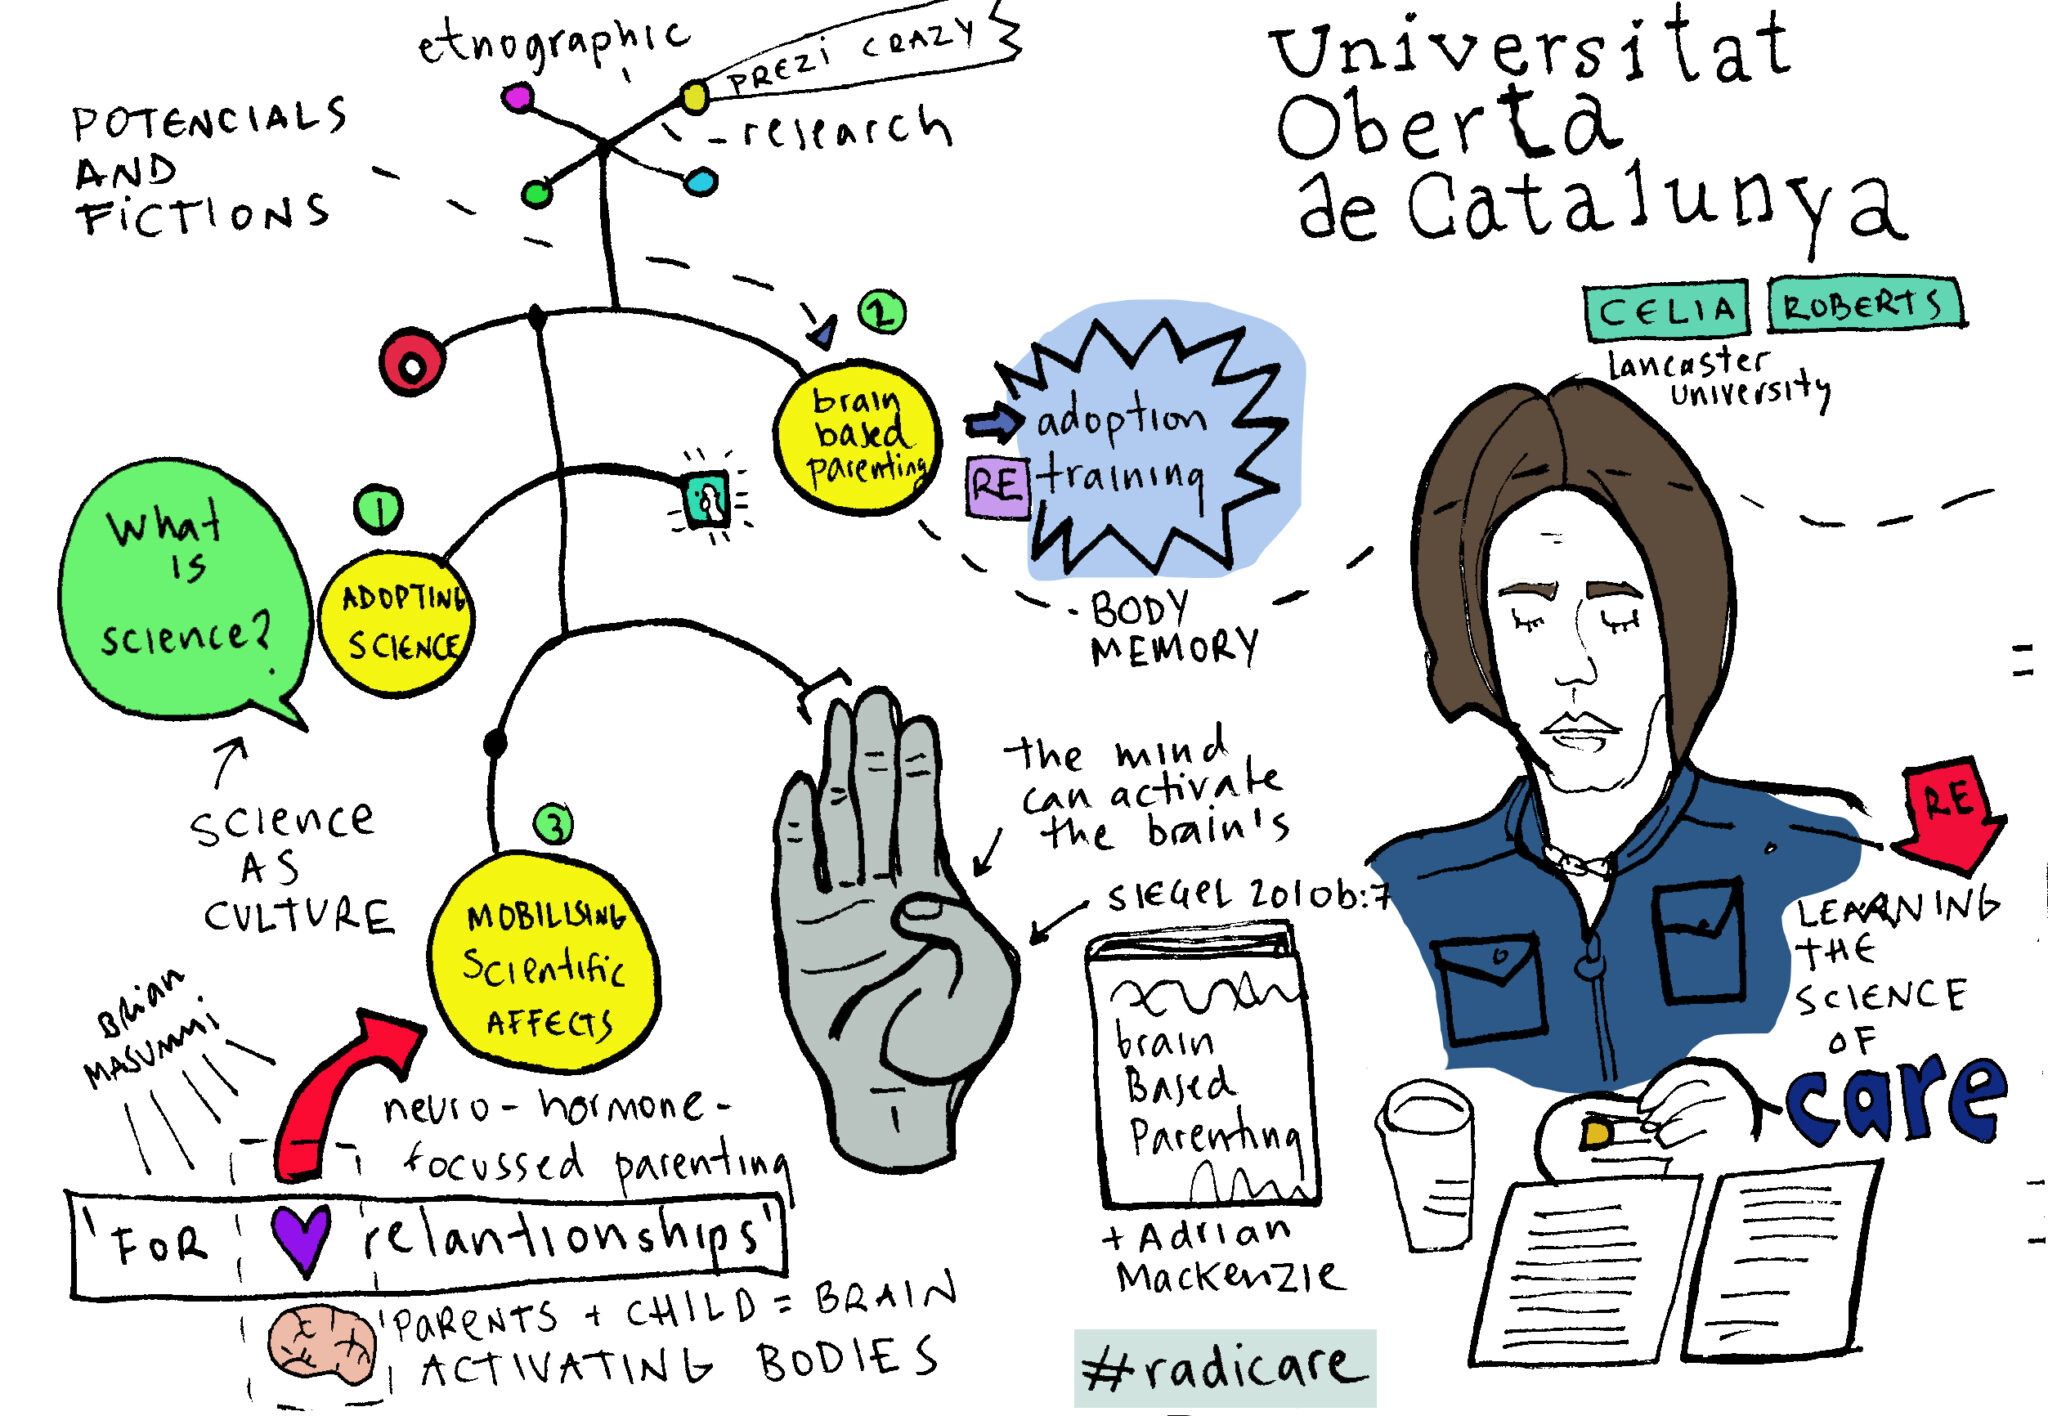 etnographic
PREZI CRAZY
- research
POTENCIALS
AND
FICTIONS
Universitat
Oberta
de Catalunya
CELIA ROBERTS
Lancaster
University
2
brain
based
parenting
adoption
RE training
BODY
MEMORY
What
is
science?
1
ADOPTING
SCIENCE
SCIENCE
AS
CULTURE
3
MOBILISING
Scientific
AFFECTS
the mind
can activate
the brain's
SIEGEL 2010b:7
brain
Based
Parenting
+ Adrian
Mackenzie
RE
LEARNING
THE
SCIENCE
OF
care
Brian
MASUMMI
neuro-hormone-
focussed parenting
'FOR relantionships'
'PARENTS + CHILD = BRAIN
ACTIVATING BODIES
#radicare